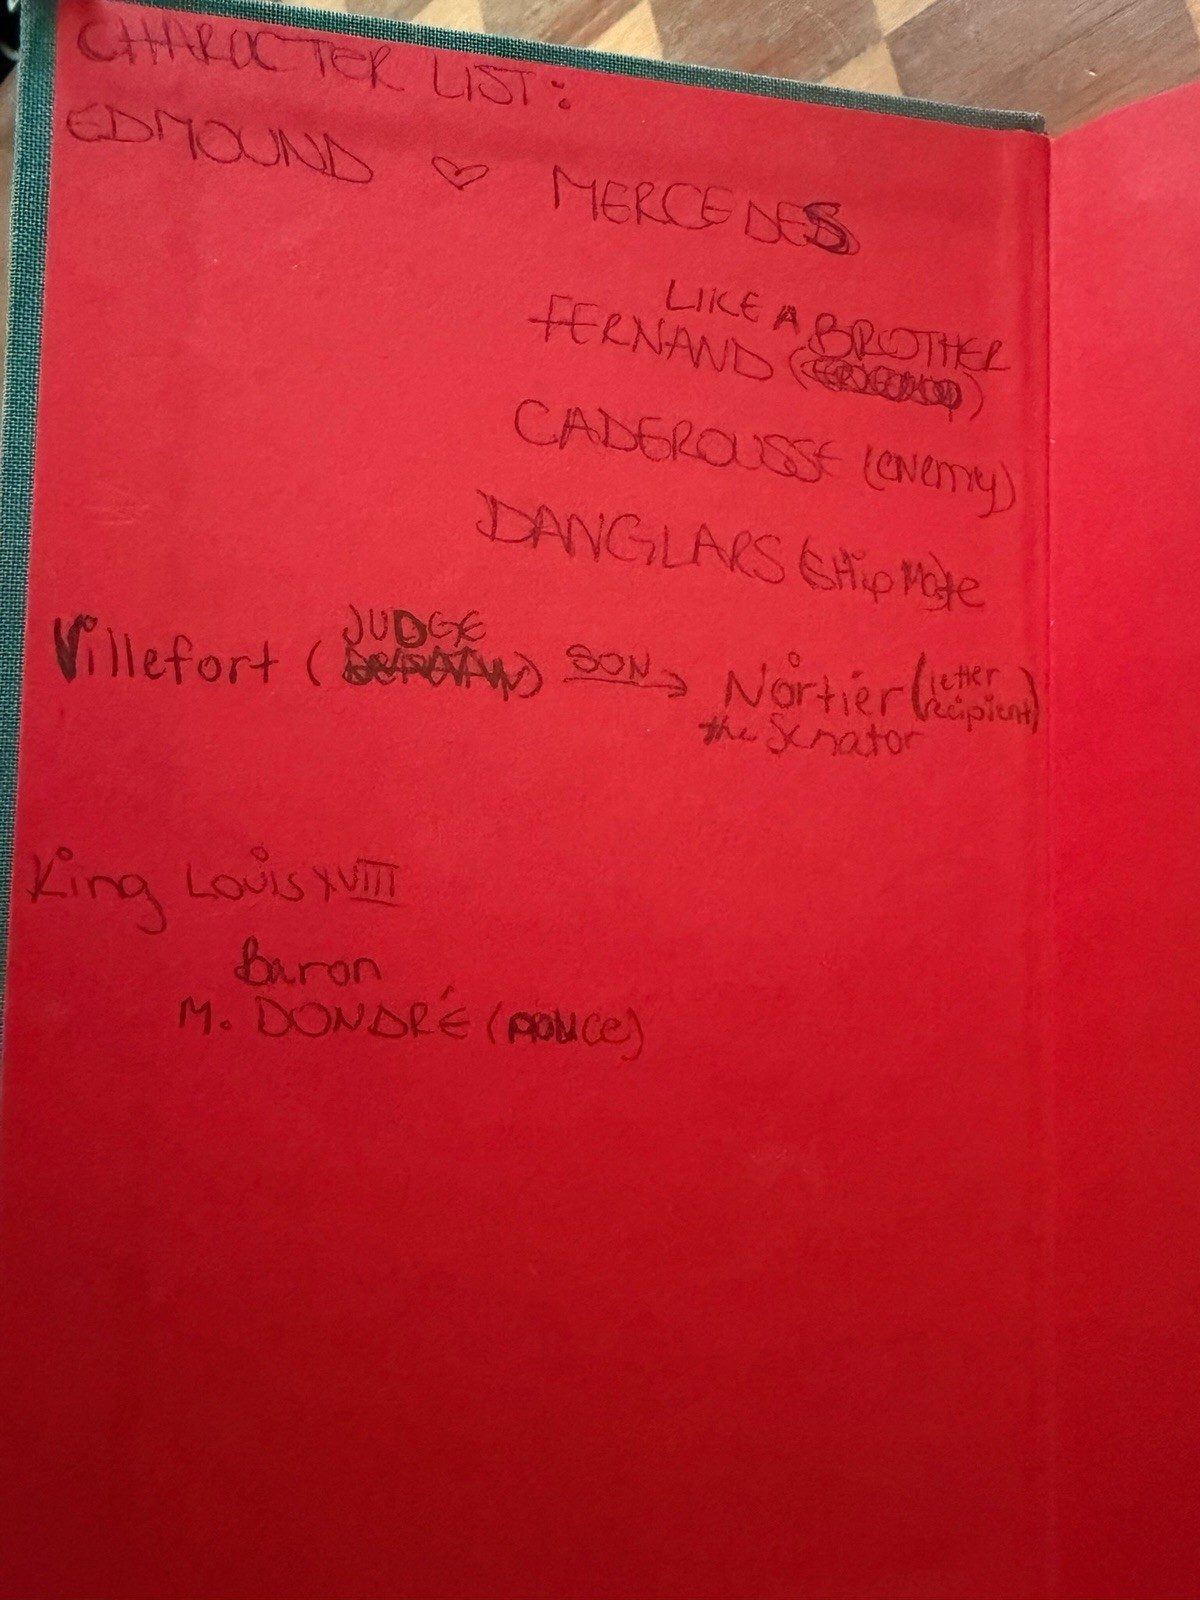 CHAROCTER LIST:
EDMOUND ♡ MERCEDES
LIKE A BROTHER
FERNAND ( )
CADEROUSSE (enemy)
DANGLARS (SHip Mate
JUDGE
Villefort ( ) SON → Nortier (letter recipient)
the Senator
King LOUIS XVIII
Baron
M. DONDRÉ (POLICE)